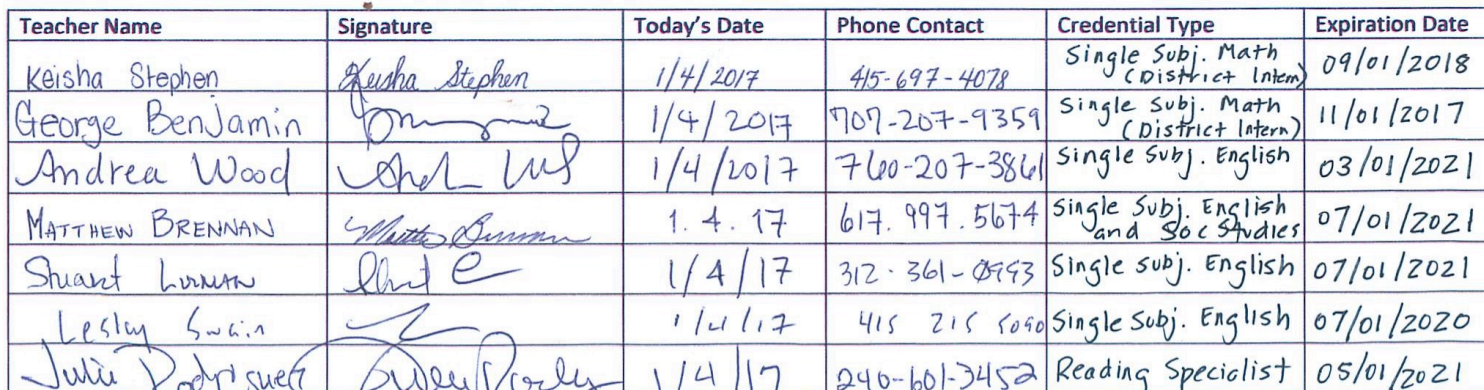 Teacher Name Signature Today's Date Phone Contact Credential Type Expiration Date
Keisha Stephen Keisha Stephen 1/4/2017 415-697-4078 Single Subj. Math (District Intern) 09/01/2018
George Benjamin 1/4/2017 707-207-9359 Single Subj. Math (District Intern) 11/01/2017
Andrea Wood 1/4/2017 760-207-3861 Single Subj. English 03/01/2021
MATTHEW BRENNAN 1.4.17 617.997.5674 Single Subj. English and Soc Studies 07/01/2021
Stuart 1/4/17 312-361-0993 Single Subj. English 07/01/2021
Lesley Swain 1/4/17 415 215 5090 Single Subj. English 07/01/2020
Julie Rodriguez 1/4/17 240-601-3452 Reading Specialist 05/01/2021